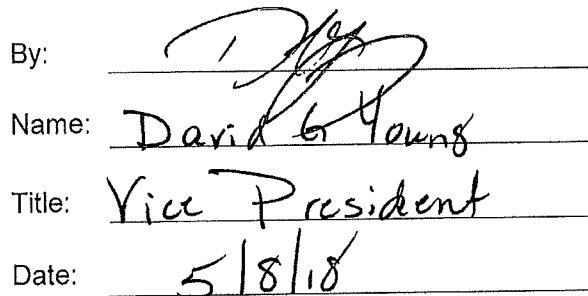 By:
Name: David G Young
Title: Vice President
Date: 5/8/18